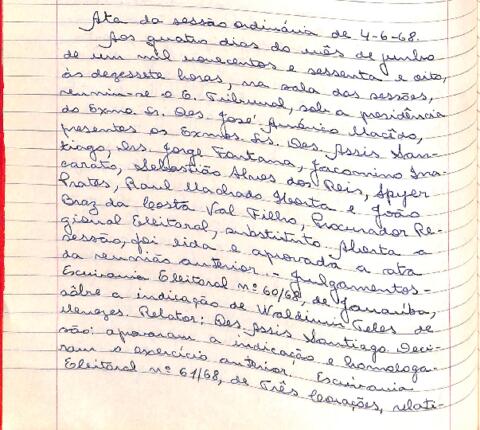 Ata da sessão ordinária de 4-6-68.
Aos quatro dias do mês de junho
de um mil novecentos e sessenta e oito,
às dezessete horas, na sala das sessões,
reuniu-se o E. Tribunal, sob a presidência
do Exmo. Sr. Des. José Américo Macêdo,
presentes os Exmos. Srs. Des. Assis San-
tiago, Drs. Jorge Fontana, Jacomino Ina-
carato, Sebastião Alves dos Reis, Spyer
Prates, Raul Machado Horta e João
Braz da Costa Val Filho, Procurador Re-
gional Eleitoral, substituto. Aberta a
sessão, foi lida e aprovada a ata
da reunião anterior. - Julgamentos -
Escrivania Eleitoral nº 60/68, de Janaúba,
sôbre a indicação de Waldimir Teles de
Menezes. Relator: Des. Assis Santiago. Deci-
são: aprovaram a indicação e homologa-
ram o exercício anterior. Escrivania
Eleitoral nº 61/68, de Três Corações, relati-